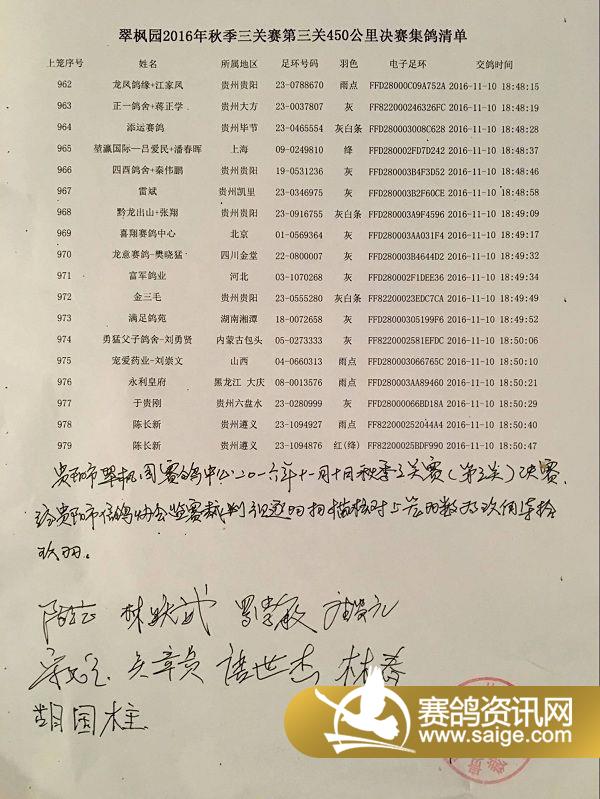 翠枫园2016年秋季三关赛第三关450公里决赛集鸽清单
上笼序号 姓名 所属地区 足环号码 羽色 电子足环 交鸽时间
962 龙凤鸽缘+江家凤 贵州贵阳 23-0788670 雨点 FFD28000C09A752A 2016-11-10 18:48:15
963 正一鸽舍+蒋正学 贵州大方 23-0037807 灰 FF822000246326FC 2016-11-10 18:48:19
964 添运赛鸽 贵州毕节 23-0465554 灰白条 FFD280003008C628 2016-11-10 18:48:28
965 堃赢国际—吕爱民+潘春晖 上海 09-0249810 绛 FFD280002FD7D242 2016-11-10 18:48:37
966 四酉鸽舍+秦伟鹏 贵州贵阳 19-0531236 灰 FFD280003B4F3D52 2016-11-10 18:48:46
967 雷斌 贵州凯里 23-0346975 灰 FFD280003B2F60CE 2016-11-10 18:48:58
968 黔龙出山+张翔 贵州贵阳 23-0916755 灰白条 FFD280003A9F4596 2016-11-10 18:49:09
969 喜翔赛鸽中心 北京 01-0569364 灰 FFD280003AA031F4 2016-11-10 18:49:17
970 龙意赛鸽-樊晓猛 四川金堂 22-0800007 灰 FFD280003B4644D2 2016-11-10 18:49:32
971 富军鸽业 河北 03-1070268 灰 FFD280002F1DEE36 2016-11-10 18:49:34
972 金三毛 贵州贵阳 23-0555280 灰白条 FF82200023EDC7CA 2016-11-10 18:49:49
973 满足鸽苑 湖南湘潭 18-0072658 灰 FFD28000305199F6 2016-11-10 18:49:52
974 勇猛父子鸽舍-刘勇贤 内蒙古包头 05-0273333 灰 FF8220002581EFDC 2016-11-10 18:50:06
975 宠爱药业-刘崇文 山西 04-0660313 雨点 FFD280003066765C 2016-11-10 18:50:10
976 永利皇府 黑龙江 大庆 08-0013576 雨点 FFD280003AA89460 2016-11-10 18:50:21
977 于贵刚 贵州六盘水 23-0280999 灰 FFD280000066BD18A 2016-11-10 18:50:29
978 陈长新 贵州遵义 23-1094927 雨点 FF822000252044A4 2016-11-10 18:50:40
979 陈长新 贵州遵义 23-1094876 红(绛) FF82200025BDF990 2016-11-10 18:50:47
贵阳市翠枫园赛鸽中心二〇一六年十一月十日秋季三关赛(第三关)决赛,
经贵阳市信鸽协会监赛裁判扫描核对上笼羽数
玖羽。
林跃武
吴章贵 诸世杰 林春
胡国柱
赛鸽资讯网
www.saige.com